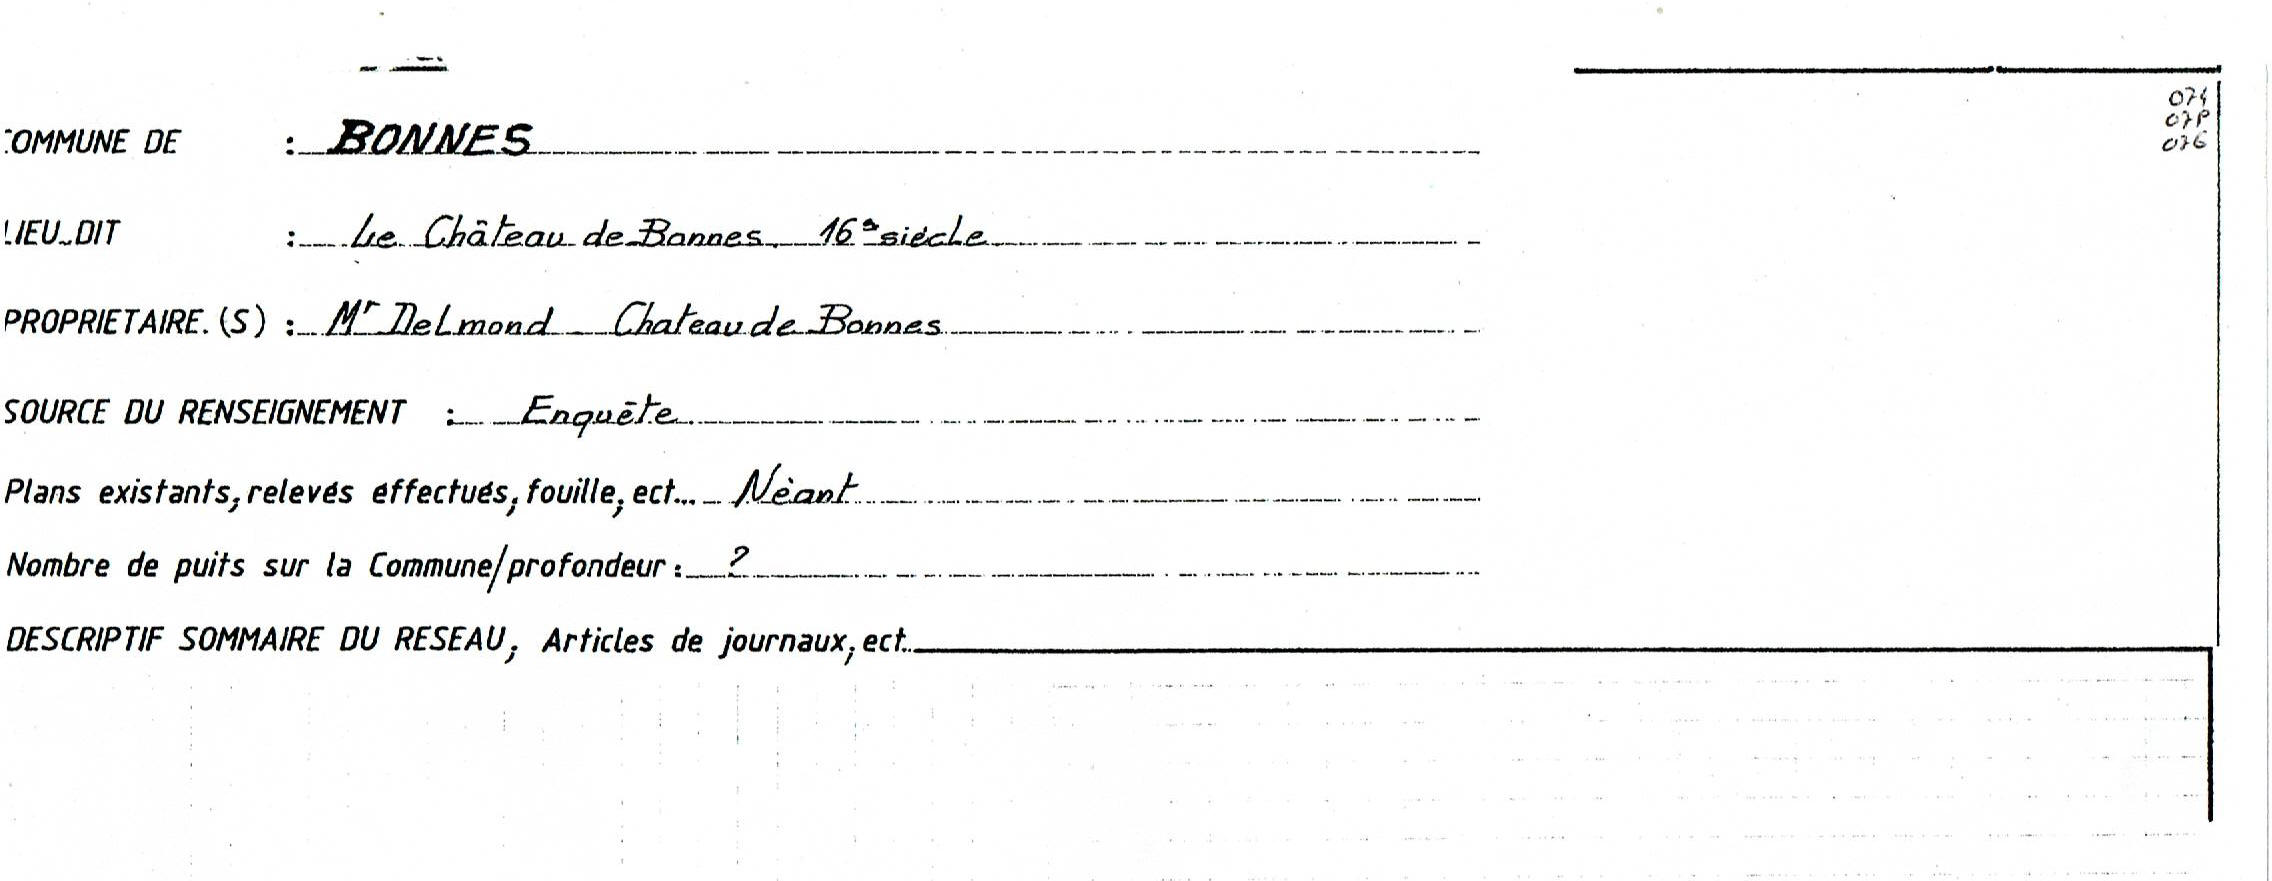 COMMUNE DE : BONNES
LIEU_DIT : Le Château de Bonnes. 16e siécle
PROPRIETAIRE.(S) : Mr Delmond Chateau de Bonnes
SOURCE DU RENSEIGNEMENT : Enquête
Plans existants, relevés éffectués, fouille, ect... Nèant
Nombre de puits sur la Commune/profondeur : ?
DESCRIPTIF SOMMAIRE DU RESEAU, Articles de journaux, ect..